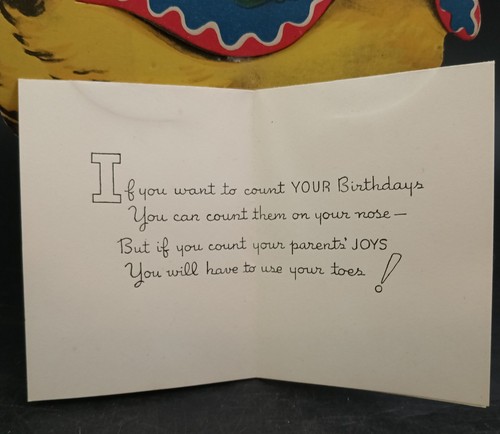 If you want to count YOUR Birthdays
You can count them on your nose —
But if you count your parents' JOYS
You will have to use your toes!